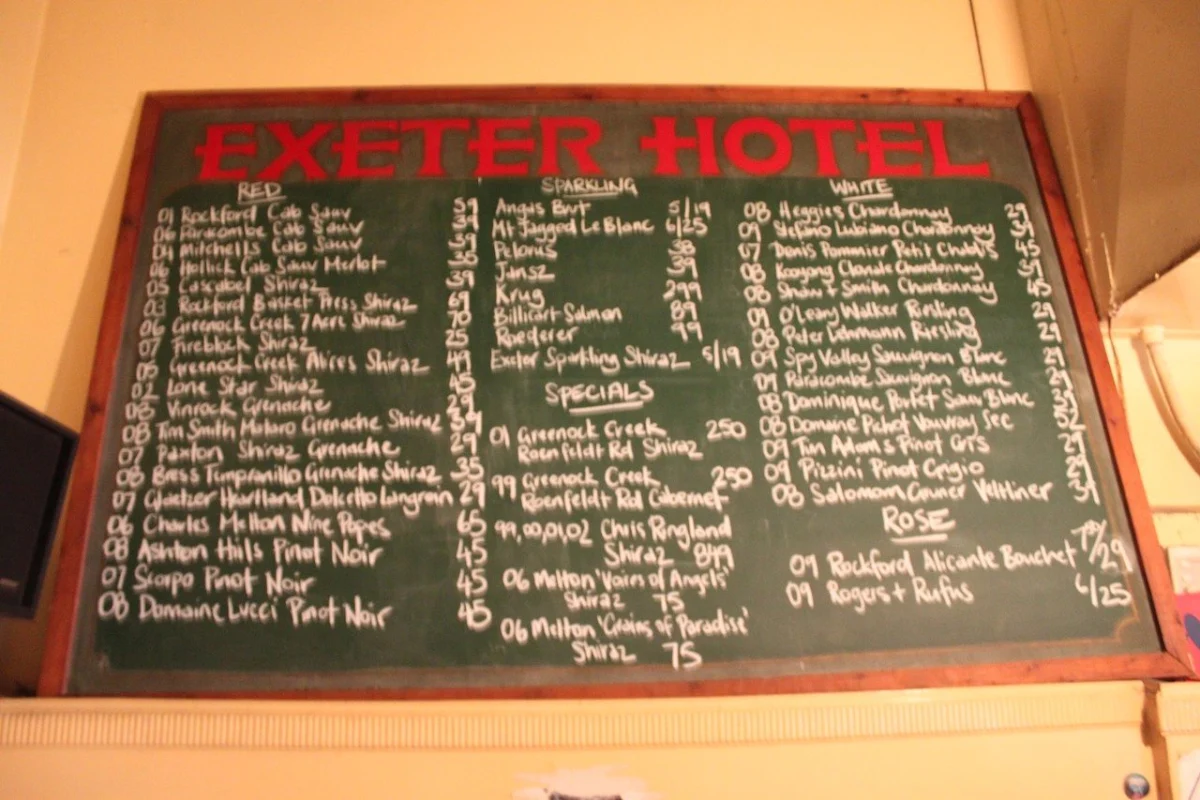 EXETER HOTEL
RED
01 Rockford Cab Sauv 59
06 Paracombe Cab Sauv 39
04 Mitchells Cab Sauv 39
06 Hollick Cab Sauv Merlot 35
05 Cascabel Shiraz 39
Rockford Basket Press Shiraz 69
06 Greenock Creek 7 Acre Shiraz 70
07 Fireblock Shiraz 25
08 Greenock Creek Alices Shiraz 49
02 Lone Star Shiraz 45
08 Vinrock Grenache 29
08 Tim Smith Mataro Grenache Shiraz 34
07 Paxton Shiraz Grenache 29
08 Bress Tempranillo Grenache Shiraz 35
07 Glaetzer Heartland Dolcetto Langrein 29
06 Charles Melton Nine Popes 65
08 Ashton Hills Pinot Noir 45
07 Scorpo Pinot Noir 45
08 Domaine Lucci Pinot Noir 45
SPARKLING
Angas Brut 5/19
Mt Jagged Le Blanc 6/25
Pelorus 38
Jansz 39
Krug 299
Billicart Salmon 89
Roederer 99
Exeter Sparkling Shiraz 5/19
SPECIALS
01 Greenock Creek 250
Roenfeldt Rd Shiraz
99 Greenock Creek 250
Roenfeldt Rd Cabernet
99,00,01,02 Chris Ringland
Shiraz 849
06 Melton 'Voirs of Angels'
Shiraz 75
06 Melton 'Grains of Paradise'
Shiraz 75
WHITE
08 Heggies Chardonnay 29
09 Stefano Lubiano Chardonnay 39
07 Denis Pommier Petit Chablis 45
08 Kooyong Clonale Chardonnay 39
08 Shaw + Smith Chardonnay 45
09 O'Leary Walker Riesling 29
08 Peter Lehmann Riesling 29
09 Spy Valley Sauvignon Blanc 29
09 Paracombe Sauvignon Blanc 29
08 Dominique Portet Sauv Blanc 39
08 Domaine Pichot Vouvray Sec 52
09 Tim Adams Pinot Gris 29
09 Pizzini Pinot Grigio 29
08 Salomom Gruner Veltliner 39
ROSE
09 Rockford Alicante Bouchet 7.5/29
09 Rogers + Rufus 6/25